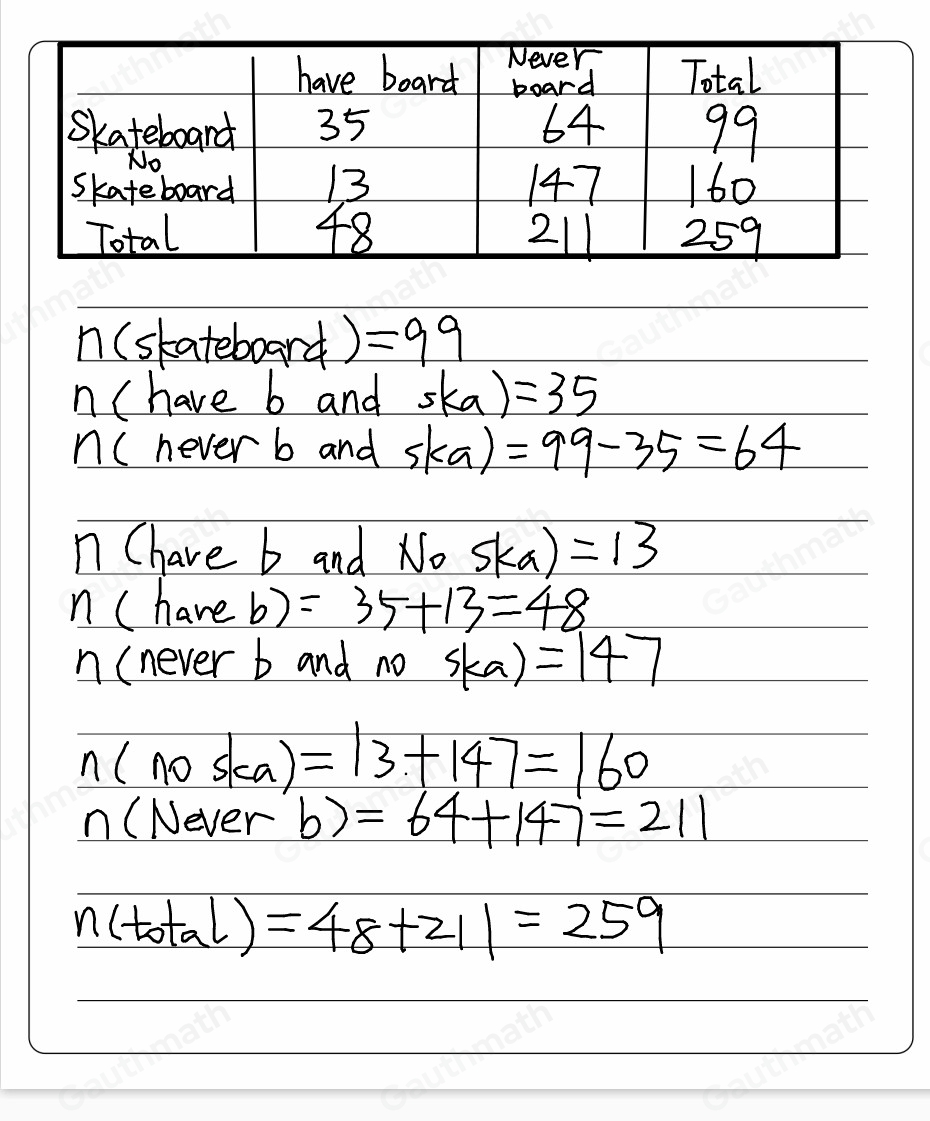 have board Never board Total
Skateboard 35 64 99
No Skateboard 13 147 160
Total 48 211 259
n(skateboard)=99
n(have b and ska)=35
n( never b and ska)=99-35=64
n(have b and No ska)=13
n( have b)= 35+13=48
n(never b and no ska)=147
n( no ska)=13+147=160
n(Never b)= 64+147=211
n(total)=48+211=259
Gauthmath